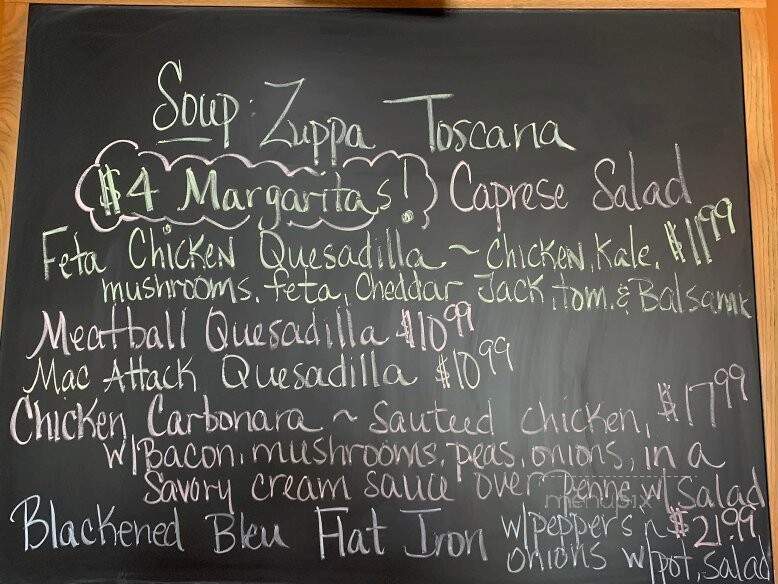 Soup: Zuppa Toscana
$4 Margaritas! Caprese Salad
Feta Chicken Quesadilla ~ Chicken, Kale, $11.99
mushrooms, feta, Cheddar Jack, tom. & Balsamic
Meatball Quesadilla $10.99
Mac Attack Quesadilla $10.99
Chicken Carbonara ~ Sauteed chicken, $17.99
w/Bacon, mushrooms, peas, onions, in a
Savory cream sauce over Penne w/ salad
menupix
Blackened Bleu Flat Iron w/peppers n $21.99
onions w/pot, salad